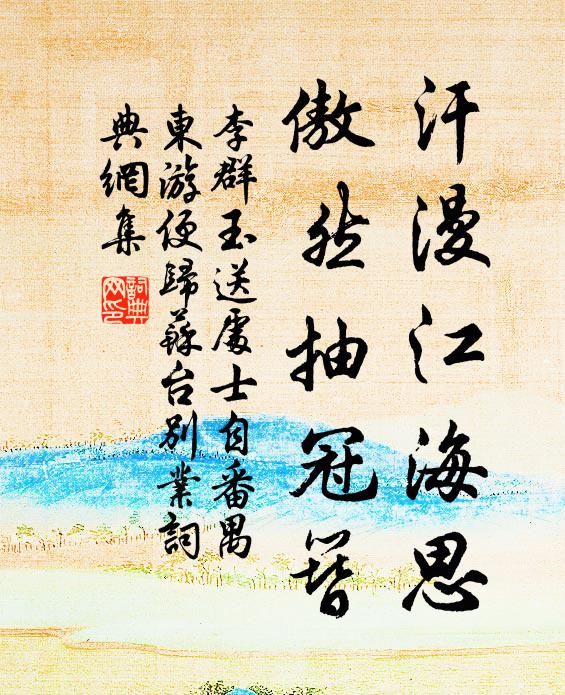 汗漫江海思
傲然抽冠簪
李群玉送處士自番禺
東游便歸蘇台別業詞
典網集
詞典
网印